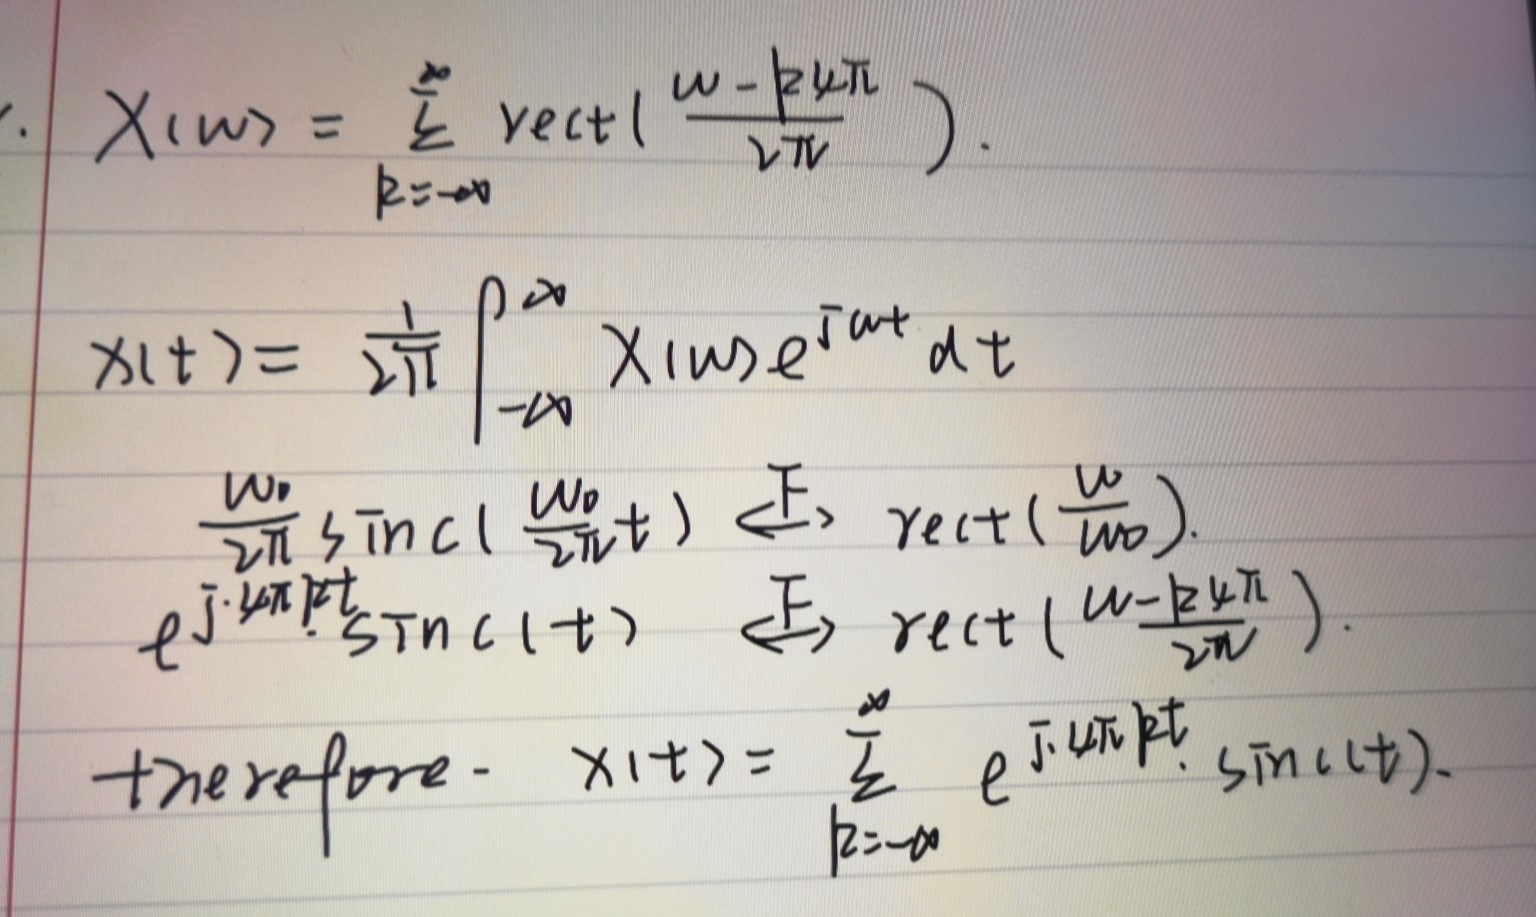 . X(w) = ∑_{k=-∞}^{∞} rect( (w - k4π)/(2π) ).
x(t) = 1/(2π) ∫_{-∞}^{∞} X(w) e^{jwt} dt
w₀/(2π) sinc( w₀/(2π) t ) <=F=> rect( w/w₀ ).
e^{j·4πkt}· sinc(t) <=F=> rect( (w - k4π)/(2π) ).
therefore - x(t) = ∑_{k=-∞}^{∞} e^{j·4πkt}· sinc(t).